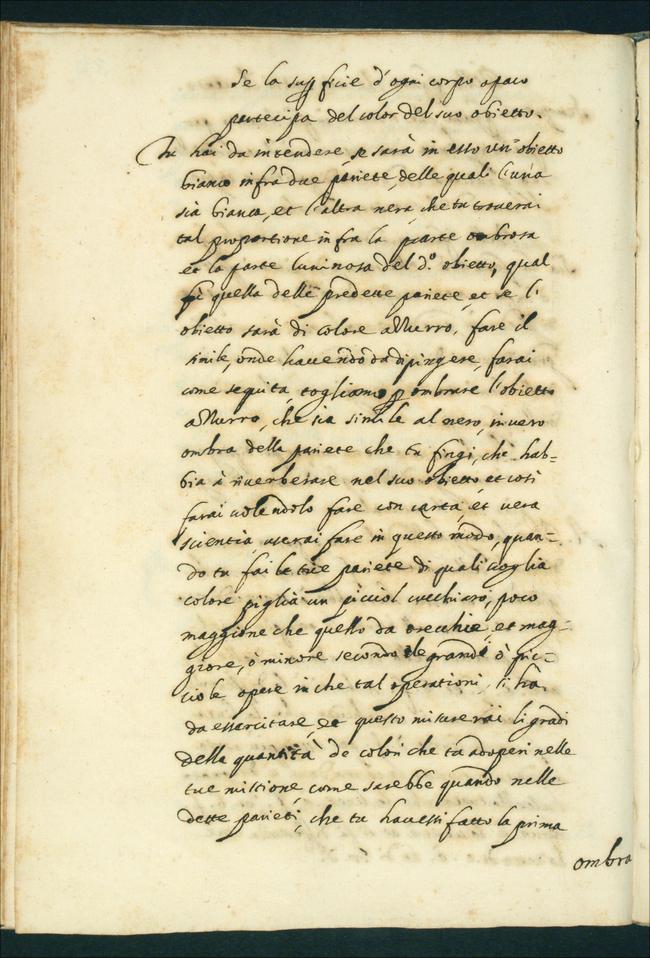 Se la supficie d'ogni corpo opaco
partecipa del color del suo obietto.
Tu hai da intendere, se sarà in esso un' obietto
bianco infra due pariete, delle quali l'una
sia bianca, et l'altra nera, che tu trouerai
tal proportione infra la parte ombrosa
et la parte luminosa del d.º obietto, qual
fù quella delle predette pariete, et se l'
obietto sarà di colore azzurro, fare il
simile, onde hauendo da dipingere, farai
come seguita, togliamo p ombrare l'obietto
azzurro, che sia simile al nero, invero
ombra della pariete che tu fingi, che hab=
bia à riuerberare nel suo obietto, et così
farai uolendolo fare con certa, et vera
scientia userai fare in questo modo, quan=
do tu fai le tue pariete di qual si uoglia
colore piglia un picciol cucchiaro, poco
maggiore che quello da orecchie et mag=
giore, ò minore secondo le grandi ò pic=
ciole opere in che tal operationi, si ha
da essercitare, et questo misurerai li gradi
della quantità de colori che tu adoperi nelle
tue mistione, come sarebbe quando nelle
dette parieti, che tu hauessi fatto la prima
ombra